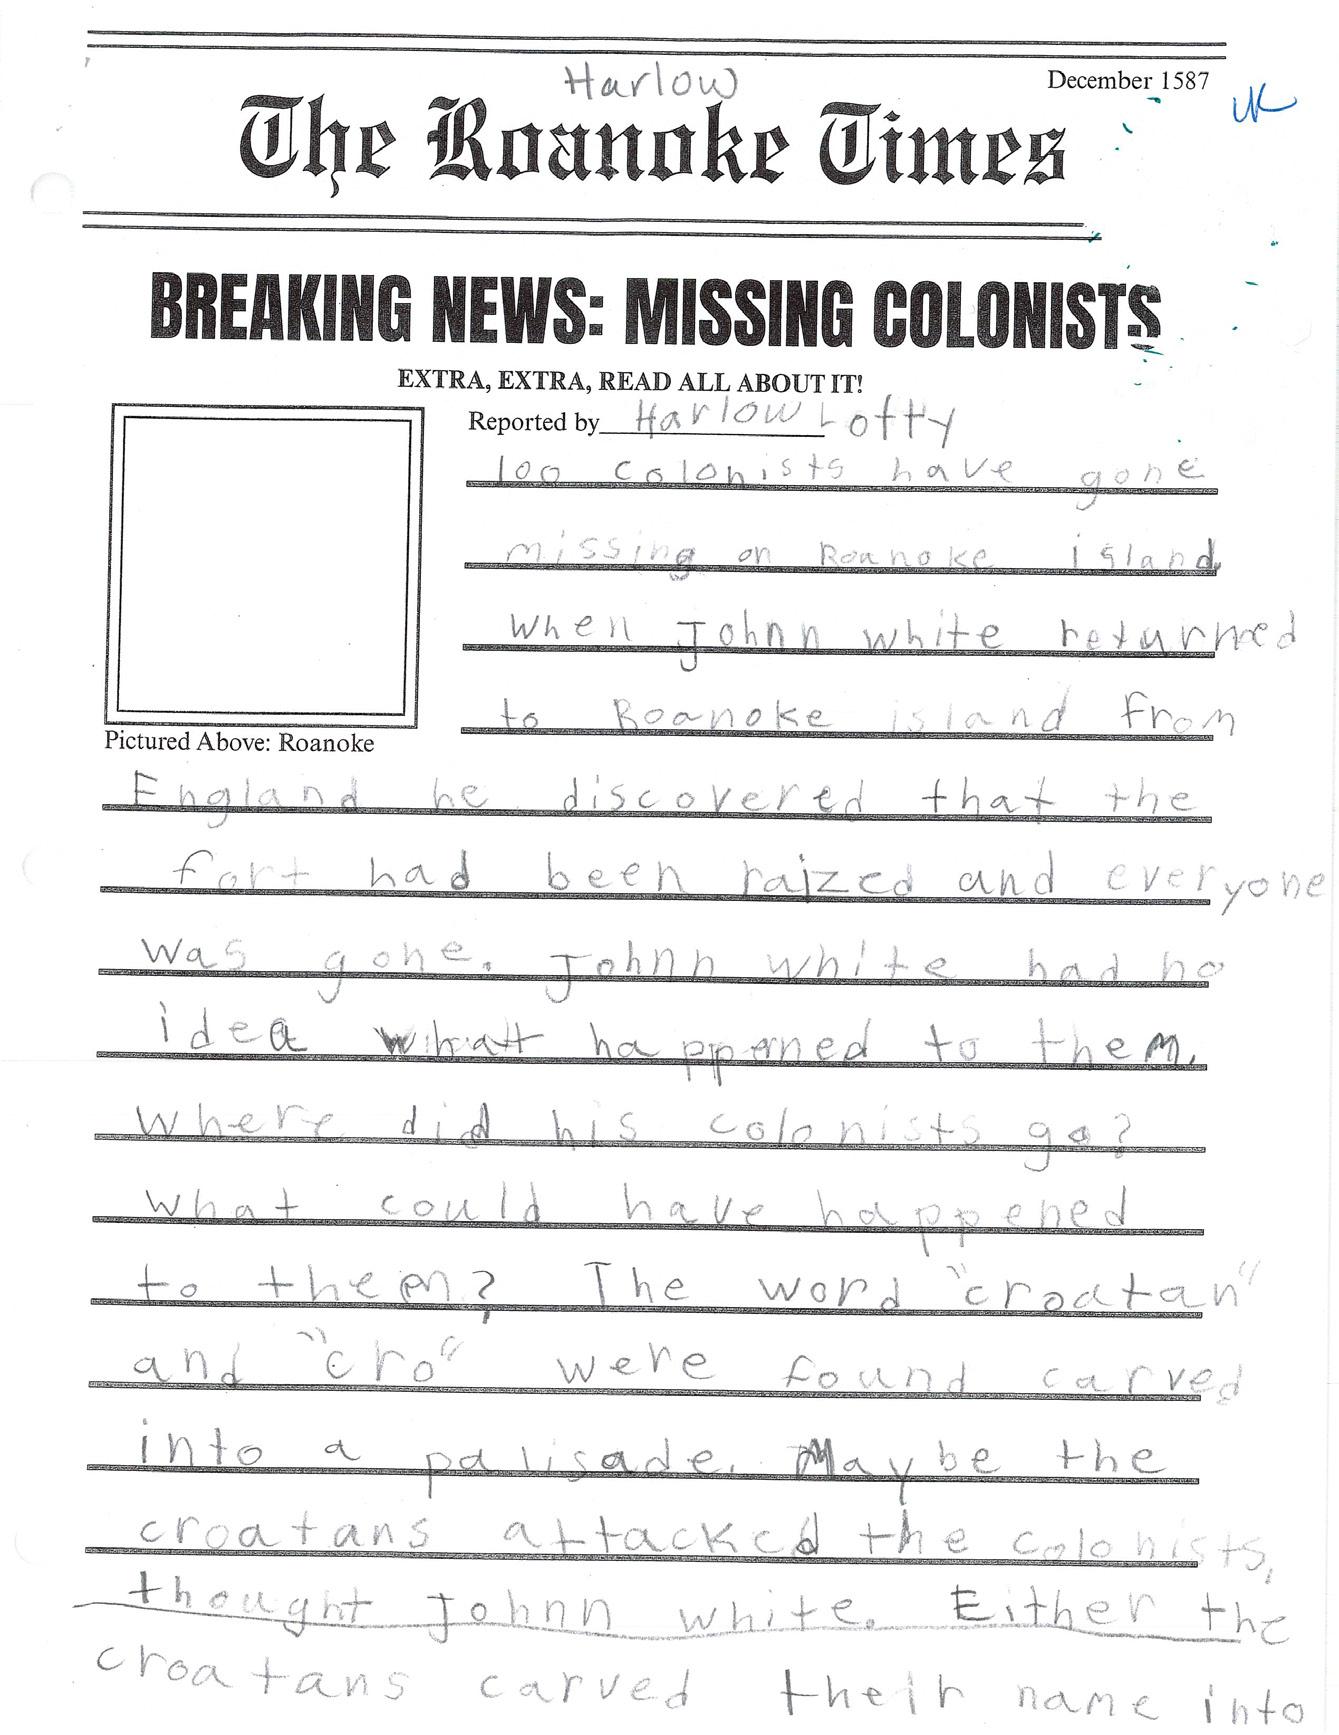 Harlow
December 1587
UK
The Roanoke Times
BREAKING NEWS: MISSING COLONISTS
EXTRA, EXTRA, READ ALL ABOUT IT!
Reported by Harlow Lofty
100 colonists have gone
missing on Roanoke island.
When Johnn white returned
to Roanoke island from
Pictured Above: Roanoke
England he discovered that the
fort had been raized and everyone
was gone. Johnn white had no
idea what happened to them.
Where did his colonists go?
What could have happened
to them? The word "croatan"
and "cro" were found carved
into a palisade. Maybe the
croatans attacked the colonists,
thought Johnn white. Either the
croatans carved their name into